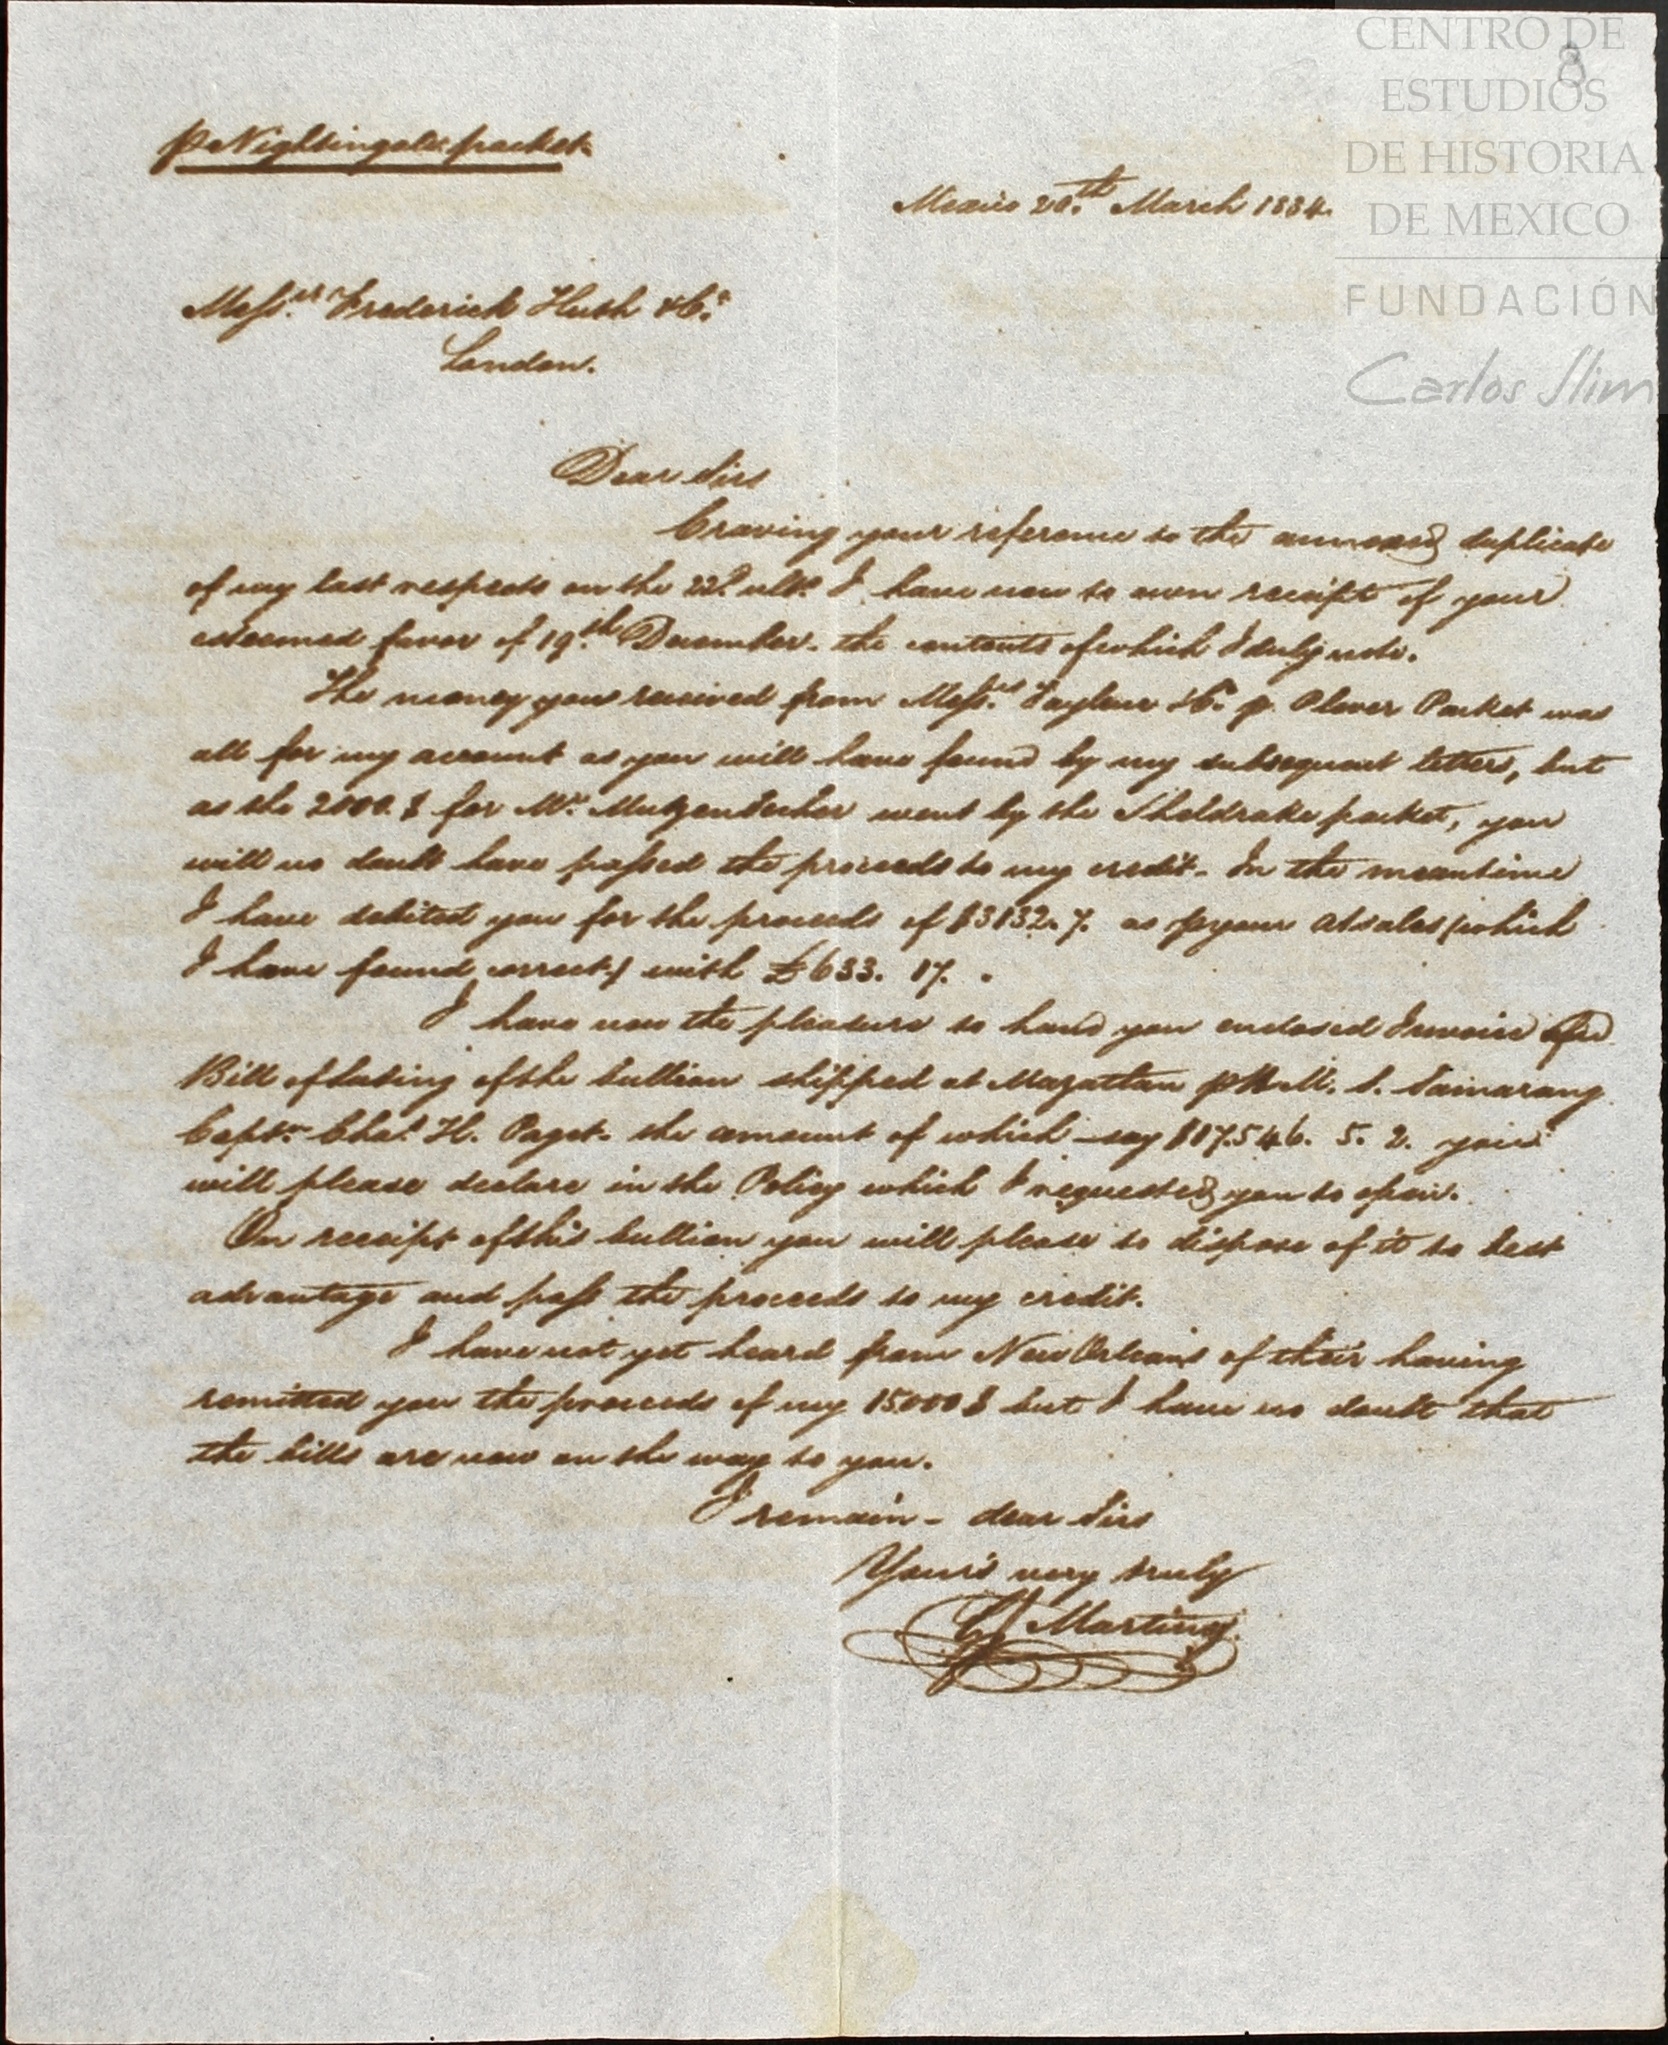 CENTRO DE
ESTUDIOS
DE HISTORIA
DE MEXICO
FUNDACIÓN
Carlos Slim
8
p Nightingale packet
Mexico 20.th March 1834.
Mess.rs Frederick Huth & Co.
London.
Dear Sirs
Craving your reference to the annexed duplicate
of my last respects on the 22.d ulto. I have now to own receipt of your
esteemed favor of 19.th December. the contents of which I duly note.
The money you received from Mess.rs Tayleur & Co. p. Plover Packet was
all for my account as you will have found by my subsequent letters, but
as the 2000.$ for Mr. Mutzenbecher went by the Sheldrake packet, you
will no doubt have passed the proceeds to my credit. In the meantime
I have debited you for the proceeds of $3132.7. as p your A/sales (which
I have found correct) with £633. 17. .
I have now the pleasure to hand you enclosed Invoice and
Bill of lading of the bullion shipped at Mazatlan p H. M. S. Samarang
Captn. Chas. H. Paget. the amount of which say $17.546. 5. 2. you
will please declare in the Policy which I requested you to open.
On receipt of this bullion you will please to dispose of it to best
advantage and pass the proceeds to my credit.
I have not yet heard from New Orleans of their having
remitted you the proceeds of my 15000$ but I have no doubt that
the bills are now on the way to you.
I remain - dear Sirs
Yours very truly
Martiny.